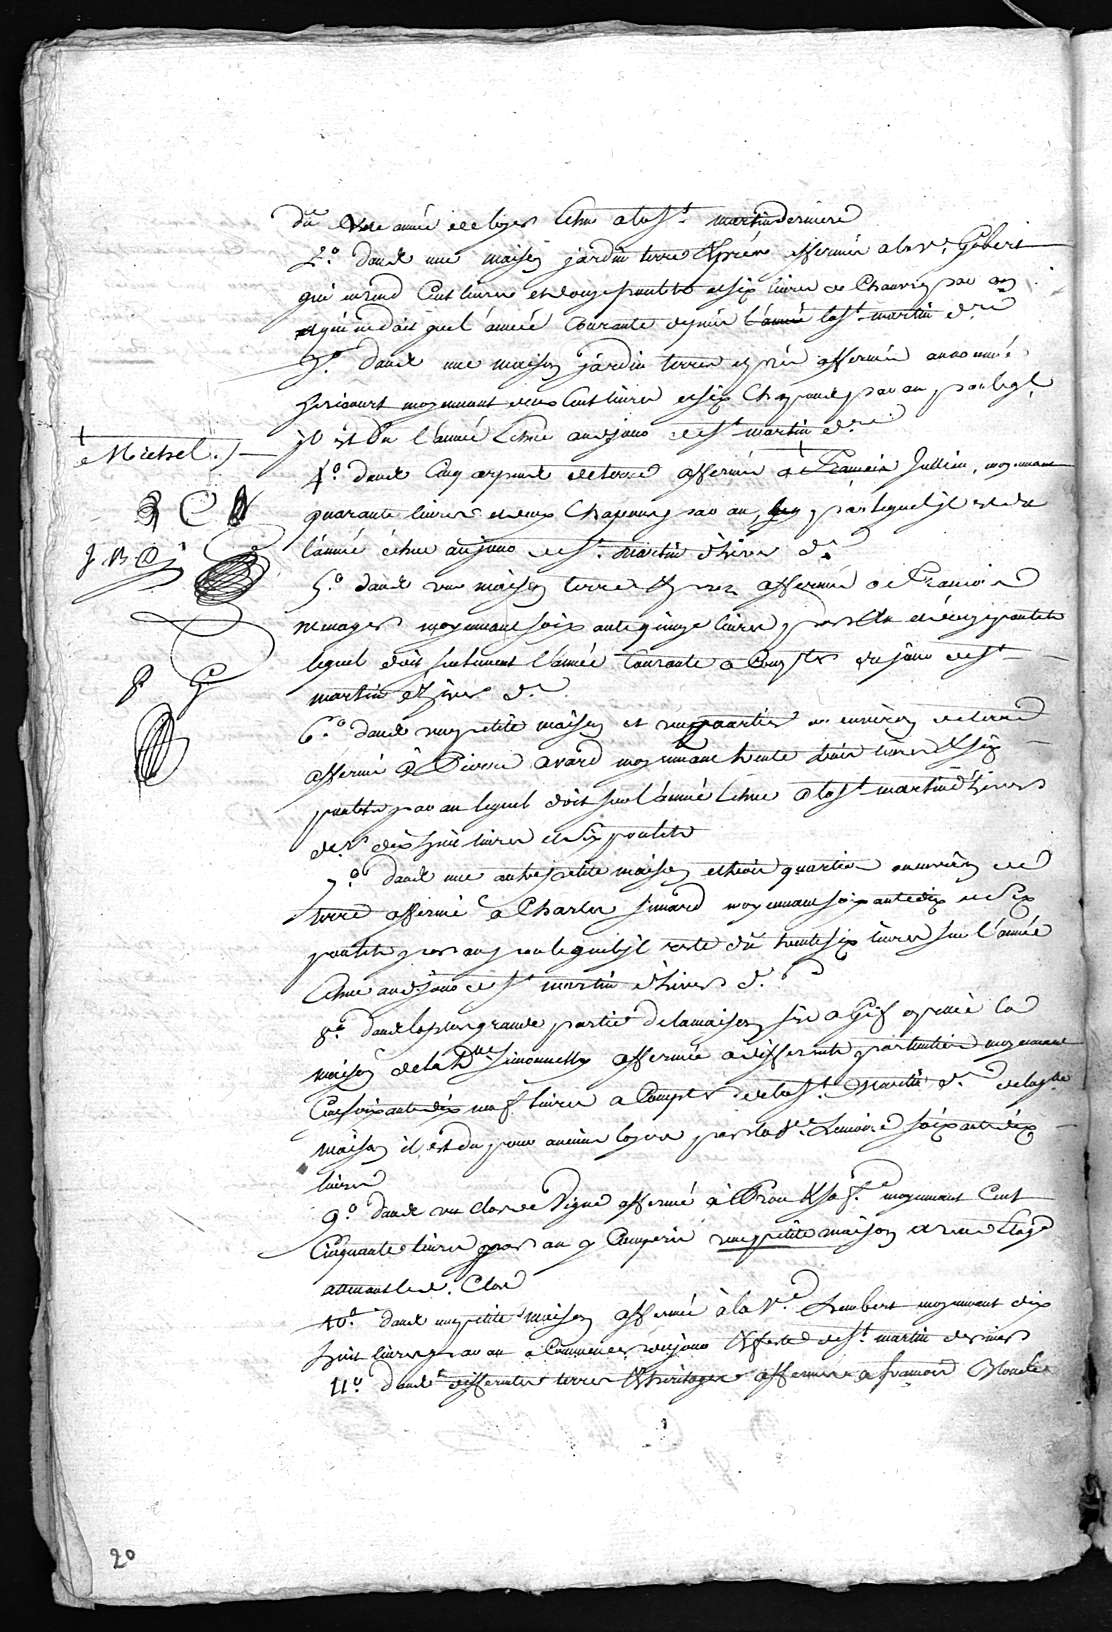 dû une année de loyer echue a la St martin derniere
2.° dans une maison jardin terre & prés affermée a la Ve. Gobert
qui en rend Cent livres et douze poulets et six livres de Chanvre par an
et qui ne doit que l'année Courante depuis l'année la St martin dre
3.° dans une maison jardin terres et pré affermée au nommé
hericourt moyennant deux Cent livres et six Chapons par an par lequel
jl est du l'année Echue au jour de St martin dre
† Michel.
4.° dans Cinq arpens de terre affermé a † Francois Jullien, moyennant
quarante livres et deux Chapons par an, par lequel jl est du
l'année échue au jour de St. martin d'hiver d.
J. B. D
5.° dans une maison terre & prez affermé a Francois
menager moyennant soixante quinze livres et douze poulets
lequel doit seulement l'année Courante a Compter du jour de St
martin d'hiver d.
6.° dans une petite maison et un quartier ou environ de terre
affermé à Pierre avard moyennant trente trois livres & six
poulets par an lequel doit sur l'année Echue a la St martin d'hiver
der. dix huit livres et six poulets
7.° dans une autre petite maison et trois quartiers ou environ de
terre affermé à Charles simard moyennant soixante dix et six
poulets par an par lequel jl reste dû trente six livres sur l'année
Echue au jour de St martin d'hiver d.
8.° dans la plus grande partie de la maison size a Gif appellé la
maison de la Dlle simonnette affermée a differents particuliers moyennant
Cent soixante dix neuf livres a Compter de la St. Martin dr. de laquelle
maison il est du pour anciens loyers par la Ve. Lemoine soixante dix
livres
9.° dans un clos de Vigne affermé à & sa fe. moyennant Cent
Cinquante livres par an y Compris une petite maison
attenant led. Clos
10.° dans une petite maison affermée à la Ve. Lambert moyennant dix
huit livres par an a Commencer du jour & feste de St martin dernier
11.° dans differentes terres & heritages affermés a francois
20